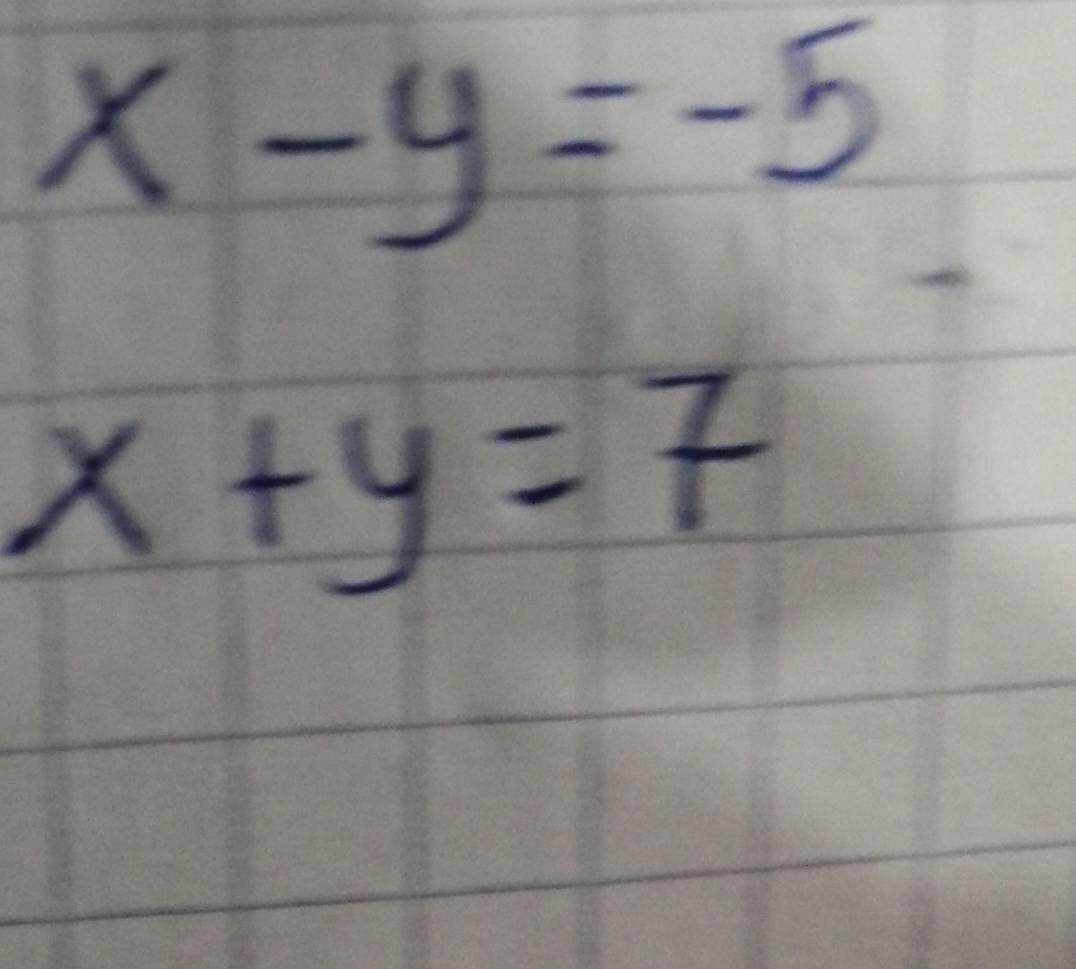 x - y = -5
x + y = 7